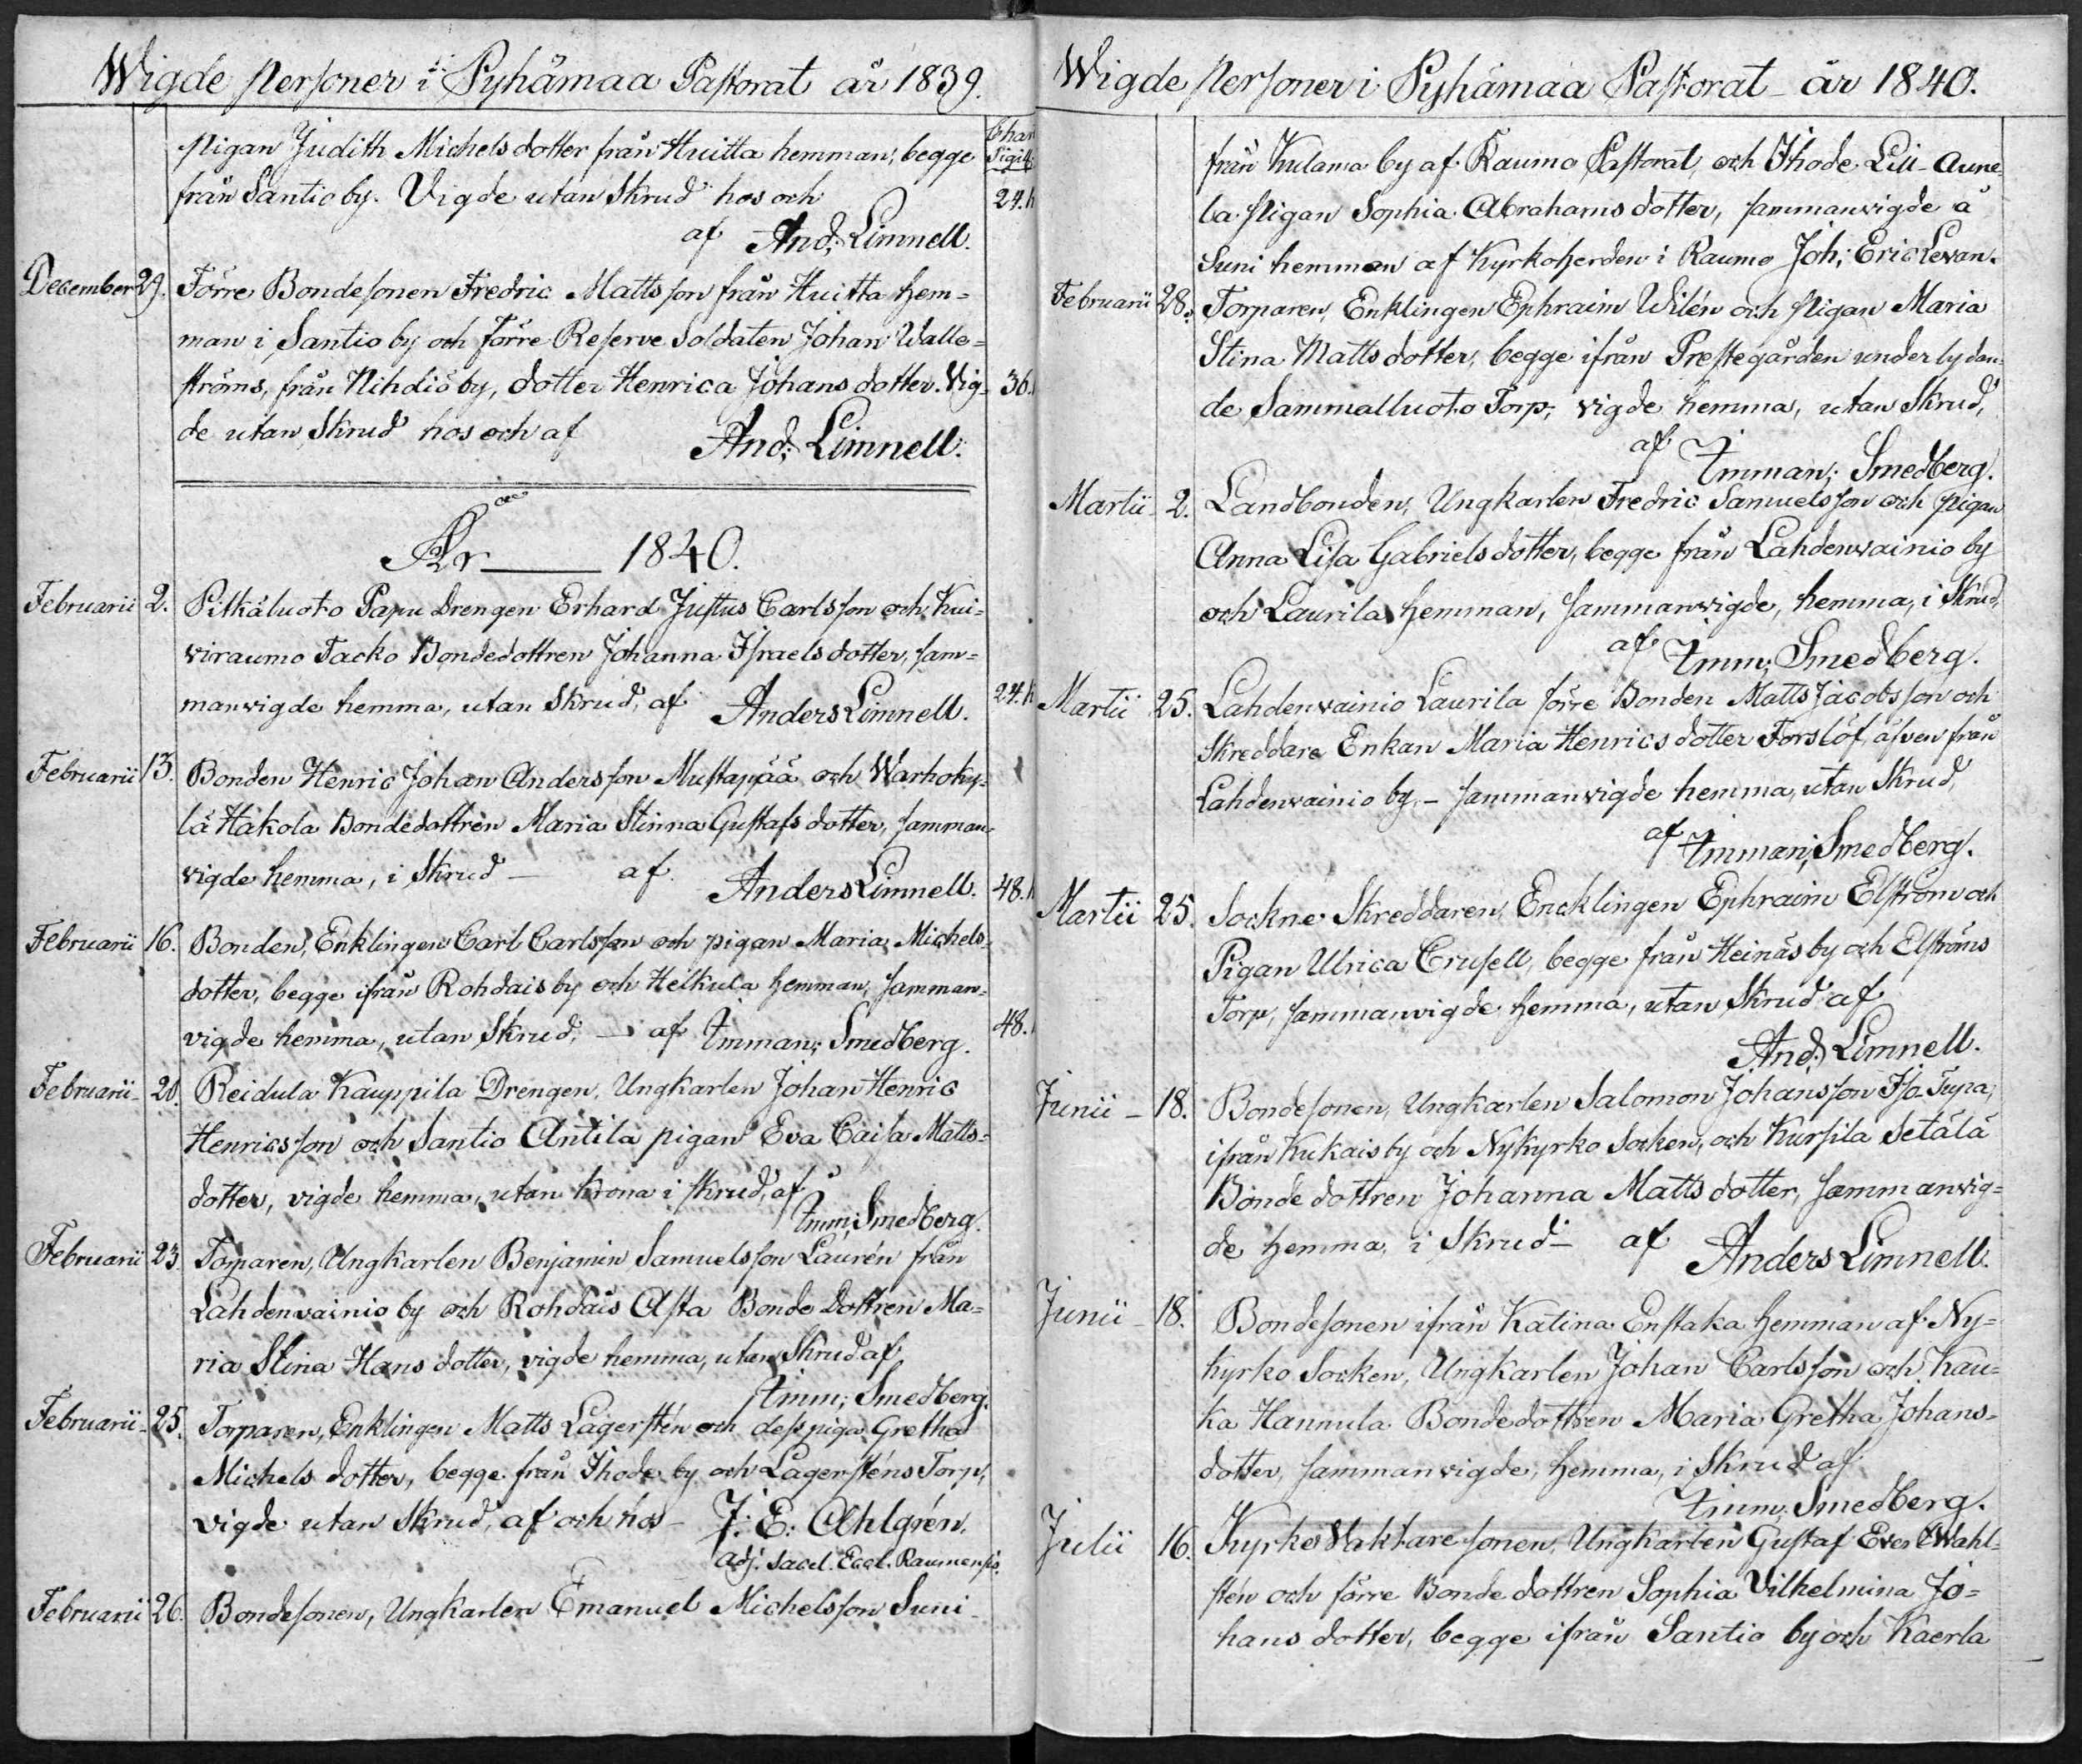 Wigde Personer i Pyhämaa Pastorat år 1839.
Char
Sigill:
pigan Judith Michelsdotter från Huitta hemman; begge
från Santio by. Vigde utan Skrud hos och 24.k
af And; Limnell.
December 29. Förre Bondesonen Fredric Mattsson från Huitta hem=
man i Santio by och förre Reserve Soldaten Johan Walle=
ströms, från Nihdiö by, dotter Henrica Johansdotter. Vig= 36.
de utan Skrud hos och af And; Limnell.
År 1840.
Februarii 2. Pitkäluoto Papu Drengen Erhard Justus Carlsson och Kui=
viraumo Tacko Bondedottren Johanna Israelsdotter, sam=
manvigde hemma, utan Skrud, af Anders Limnell. 24.k
Februarii 13. Bonden Henric Johan Andersson Mustapää och Warhoky=
lä Hakola Bondedottren Maria Stinna Gustafsdotter, samman=
vigde hemma, i Skrud – af Anders Limnell. 48.k
Februarii 16. Bonden, Enklingen Carl Carlsson och pigan Maria Michels=
dotter, begge ifrån Rohdais by och Heikula hemman, samman=
vigde hemma, utan Skrud, – af Imman; Smedberg. 48.
Februarii 20. Reidula Kauppila Drengen, Ungkarlen Johan Henric
Henricsson och Santio Antila pigan Eva Caisa Matts=
dotter, vigde hemma, utan krona i skrud, af
Imm; Smedberg.
Februarii 23. Torparen, Ungkarlen Benjamin Samuelsson Laurén från
Lahdenvainio by och Rohdais Asta Bonde Dottren Ma=
ria Stina Hansdotter, vigde hemma, utan Skrud af
Imm; Smedberg.
Februarii 25. Torparen, Enklingen Matts Lagerstén och dess piga Gretha
Michels dotter, begge från Ihode by och Lagersténs Torp,
vigde utan Skrud, af och hos – J: E: Ahlgrén,
adj. Sacel. Eccl. Raumensis.
Februarii 26. Bondesonen, Ungkarlen Emanuel Michelsson Suni
Wigde Personer i Pyhämaa Pastorat år 1840.
från Kulama by af Raumo Pastorat, och Ihode Lill-Aune
la pigan Sophia Abrahamsdotter, sammanvigde å
Suni hemman af Kyrkoherden i Raumo Joh; Eric Levan.
Februarii 28. Torparen, Enklingen Ephraim Wilén och pigan Maria
Stina Mattsdotter, begge ifrån Prestegården underlydan=
de Sammalluoto Torp, vigde hemma, utan Skrud,
af Imman; Smedberg.
Martii 2. Landbonden, Ungkarlen Fredric Samuelsson och pigan
Anna Lisa Gabrielsdotter, begge från Lahdenvainio by
och Laurila hemman, sammanvigde, hemma, i Skrud,
af Imm; Smedberg.
Martii 25. Lahdenvainio Laurila förre Bonden Matts Jacobsson och
Skreddare Enkan Maria Henricsdotter Forslöf, äfven från
Lahdenvainio by, – sammanvigde hemma, utan Skrud,
af Imman; Smedberg.
Martii 25. Sockne Skreddaren, Encklingen Ephraim Elström och
Pigan Ulrica Crusell, begge från Heinäs by och Elströms
Torp, sammanvigde hemma, utan Skrud af
And; Limnell.
Junii – 18. Bondesonen, Ungkarlen Salomon Johansson Iso-Tupa,
ifrån Kukais by och Nykyrko Socken, och Kursila Setälä
Bonde dottren Johanna Mattsdotter, sammanvig=
de hemma, i Skrud – af Anders Limnell.
Junii – 18. Bondesonen ifrån Katina Enstaka hemman af Ny=
kyrko Socken, Ungkarlen Johan Carlsson och Kau=
ka Hannula Bondedottren Maria Gretha Johans=
dotter, sammanvigde, hemma, i Skrud af
Imm; Smedberg.
Julii 16. KyrkoVaktare sonen, Ungkarlen Gustaf Evert Wahl=
stén och förre Bonde dottren Sophia Vilhelmina Jo=
hans dotter, begge ifrån Santio by och Kaerla